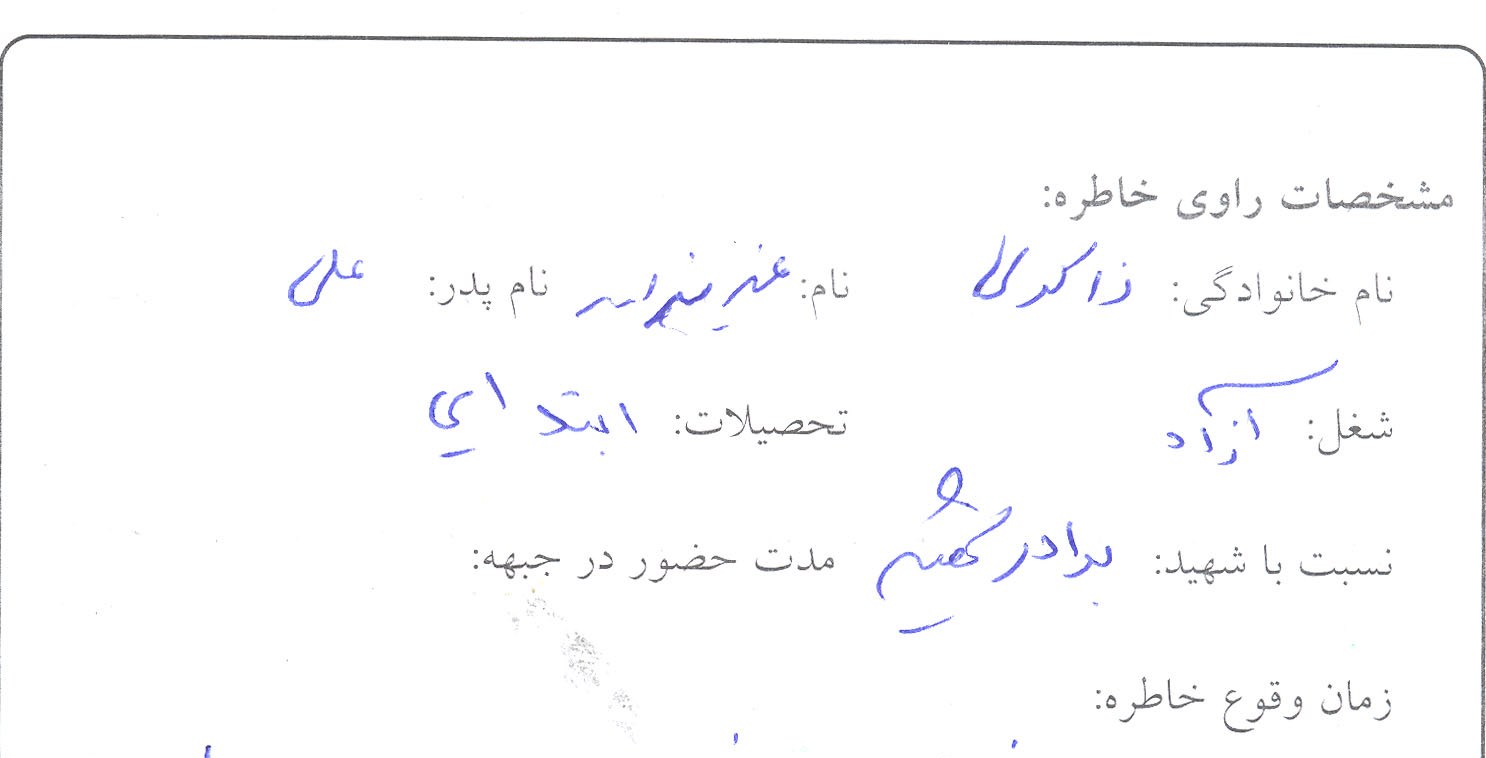 مشخصات راوی خاطره:
نام خانوادگی: ذاکری نام: عزیزاله نام پدر: علی
شغل: آزاد تحصیلات: ابتدایی
نسبت با شهید: برادر مدت حضور در جبهه:
زمان وقوع خاطره: